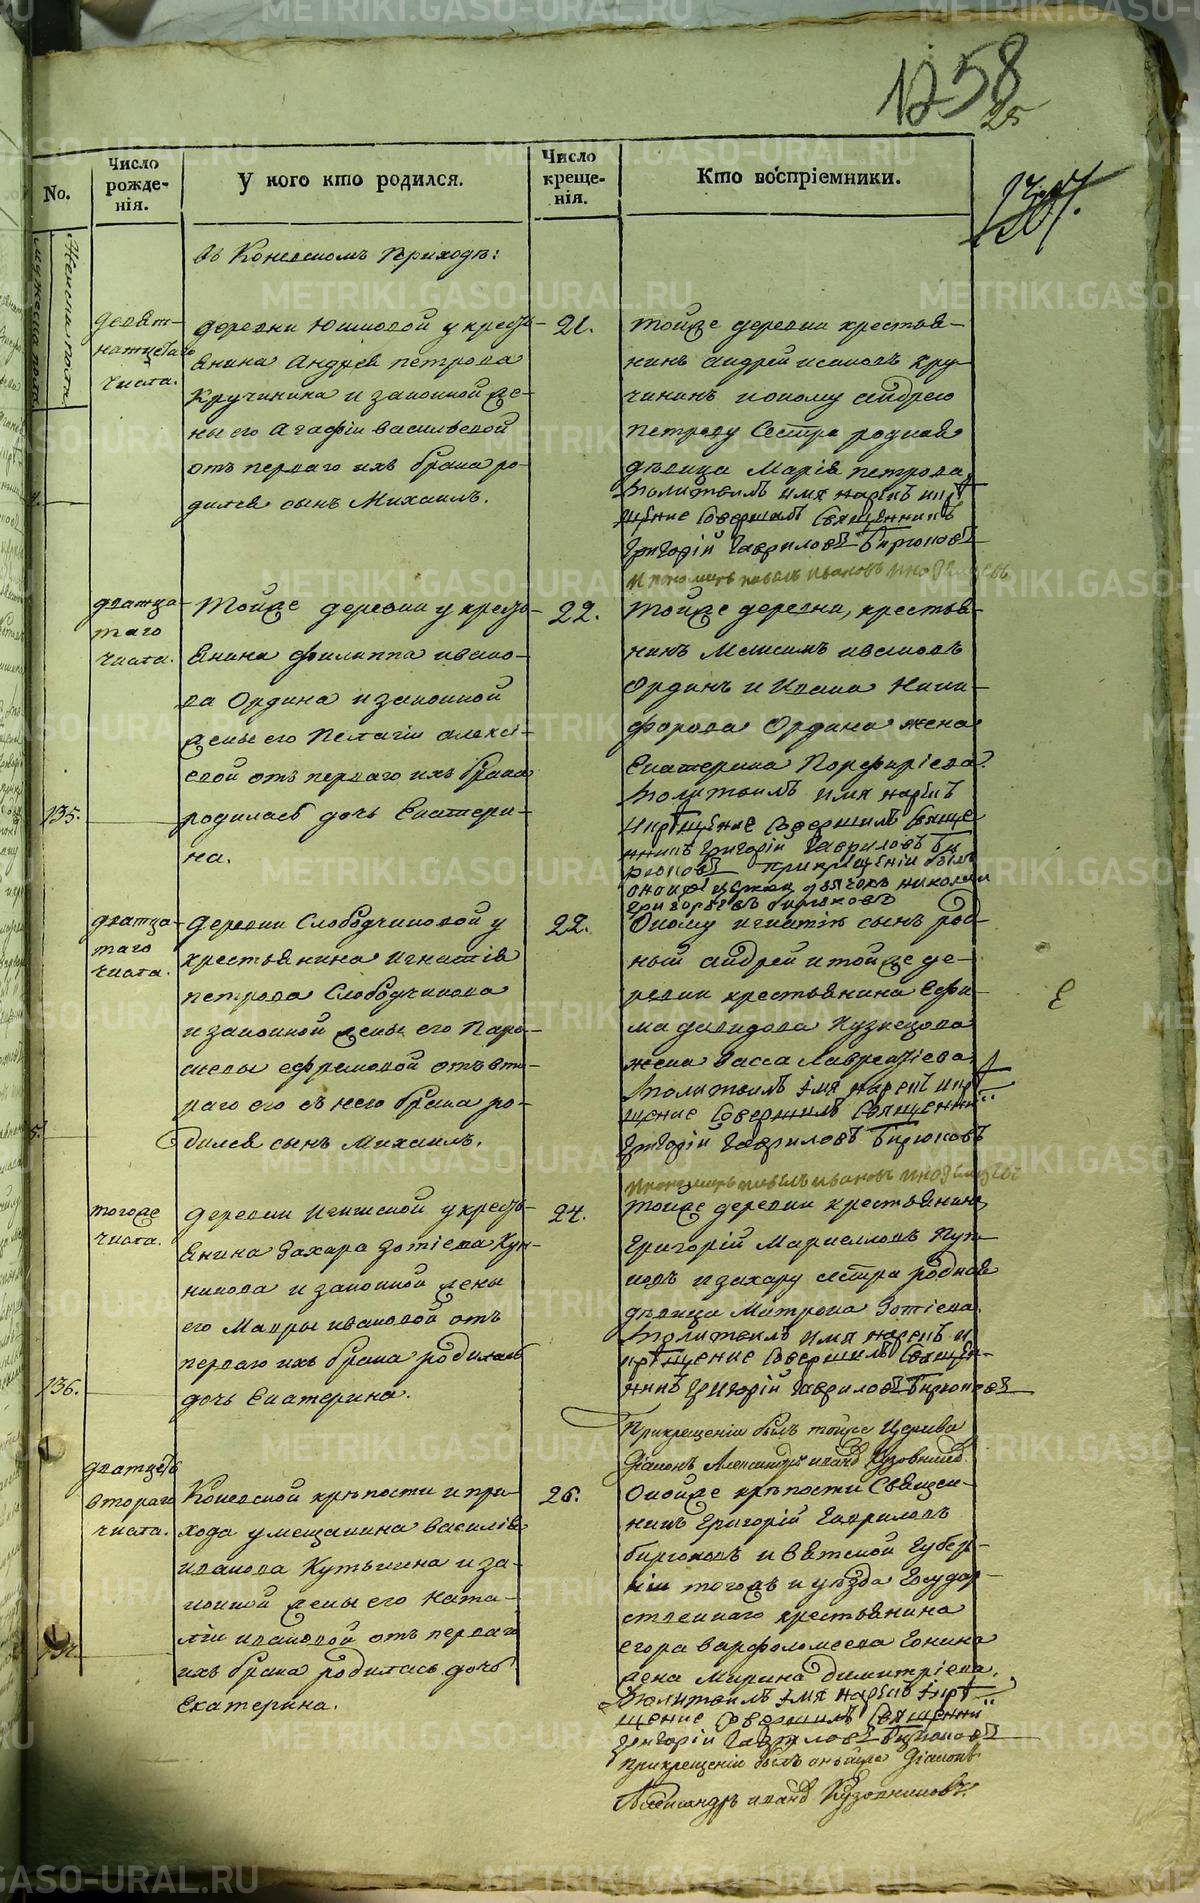 1258
25
No.
Число рожде-
нія.
У кого кто родился.
Число
креще-
нія.
Кто воспріемники.
Мужеска пола
Женска пола
въ Коневскомъ Приходѣ:
девят-
натцетаго
числа.
деревни Юшковой у кресть-
янина Андрея петрова
Кручинина и законной же-
ны его Агафіи васильевой
отъ перваго ихъ брака ро-
дился сынъ Михаилъ.
21.
тойже деревни крестья-
нинъ андрей исаковъ кру-
чининъ и оному андрею
петрову Сестра родная
дѣвица Марія петрова,
Молитвилъ имя нарекъ и кре-
щение Совершилъ Священникъ
Григорій Гавриловъ Бирюковъ
134.
дватца-
таго
числа.
тойже деревни у кресть-
янина филиппа ивано-
ва Ордина и законной
жены его Пелагіи алексѣ-
евой отъ перваго ихъ брака
родилась дочь Екатери-
на.
135.
22.
тойже деревни, крестья-
нинъ Максимъ ивановъ
Ординъ и Ивана Ники-
форова Ордина жена
Екатерина Порфиріева.
Молитвилъ имя нарекъ
и крещение Совершилъ Свяще
нникъ Григорій Гавриловъ Би
рюковъ При крещеніи былъ
оной церкви дьячекъ николай
григорьевъ бирюковъ
дватца-
таго
числа.
деревни Слободчиковой у
крестьянина игнатія
петрова Слободчикова
и законной жены его Пара-
скевы ефремовой отъ вто-
раго его съ нею брака ро-
дился сынъ Михаилъ.
22.
Оному игнатію сынъ род-
ный андрей и тойже де-
ревни крестьянина Ефи-
ма давидова Кузнецова
жена васса Лаврентіева
Молитвилъ Имя нарекъ и кре-
щение Совершилъ Священни
Григорій Гавриловъ Бирюковъ
тогоже
числа.
деревни игишской у кресть-
янина Захара Зотіева Кун-
никова и законной жены
его Мавры ивановой отъ
перваго ихъ брака родилась
дочь Екатерина.
136.
24.
тойже деревни крестьянинъ
и захару сестра родная
дѣвица Митрона Зотіева.
Молитвилъ Имя нарекъ и
крещение Совершилъ Священ-
никъ Григорій Гавриловъ Бирюковъ
При крещеніи былъ тойже Церкви
Діаконъ Александръ ивановъ Кузовниковъ
дватцеть
втораго
числа.
Коневской крѣпости и при-
хода у мещанина василія
иванова Кутькина и за-
конной жены его ната-
ліи ивановой отъ перваго
ихъ брака родилась дочь
Екатерина.
137.
26.
Онойже крѣпости Священ-
никъ Григорій Гавриловъ
бирюковъ и вятской Губер-
ніи тогожъ и уѣзда Государ-
ственнаго крестьянина
егора варфоломеева Гонина
жена Марина димитріева,
Молитвилъ Имя нарекъ и кре-
щение Совершилъ Священни
Григорій Гавриловъ Бирюковъ
При крещеніи былъ онойже Діаконъ
Александръ ивановъ Кузовниковъ.
METRIKI.GASO-URAL.RU